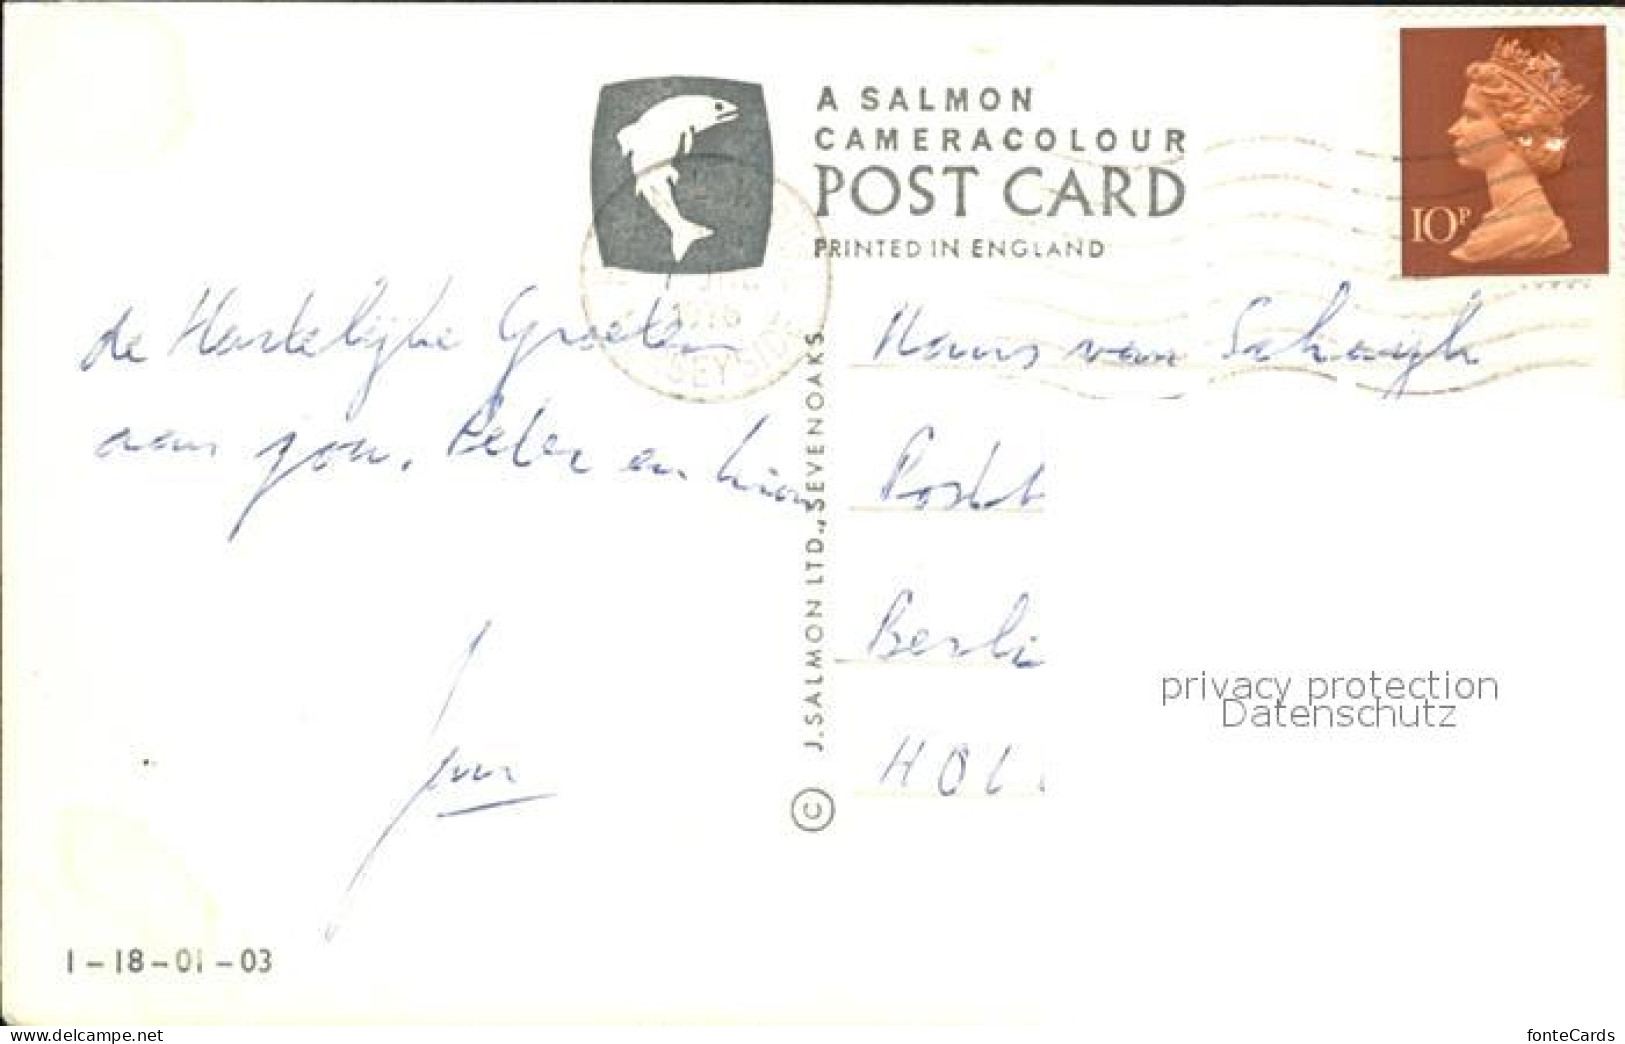 A SALMON
CAMERACOLOUR
POST CARD
PRINTED IN ENGLAND
10P
1976
SEYSIDE
de Hartelijke Groeten
aan jou, Peter en
Hans van Schaayk
Postb
Berli
HOL
J. SALMON LTD., SEVENOAKS
©
privacy protection
Datenschutz
1-18-01-03
delcampe.net
fonteCards